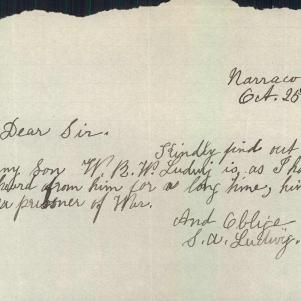 Narraco
Oct. 25
Dear Sir.
Kindly find out
my Son W. B. W. Ludwig is, as I ha
heard from him for a long time, him
a prisoner of War.
And Oblige
S. A. Ludwig.